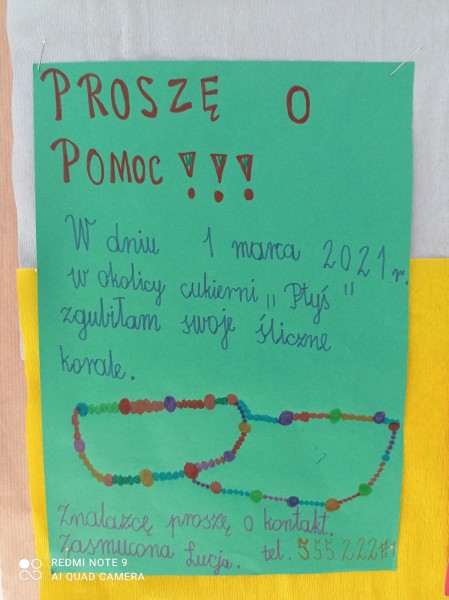 PROSZĘ O
POMOC!!!
W dniu 1 marca 2021 r.
w okolicy cukierni „Ptyś"
zgubiłam swoje śliczne
korale.
Znalazcę proszę o kontakt.
Zasmucona Łucja. tel.
REDMI NOTE 9
AI QUAD CAMERA